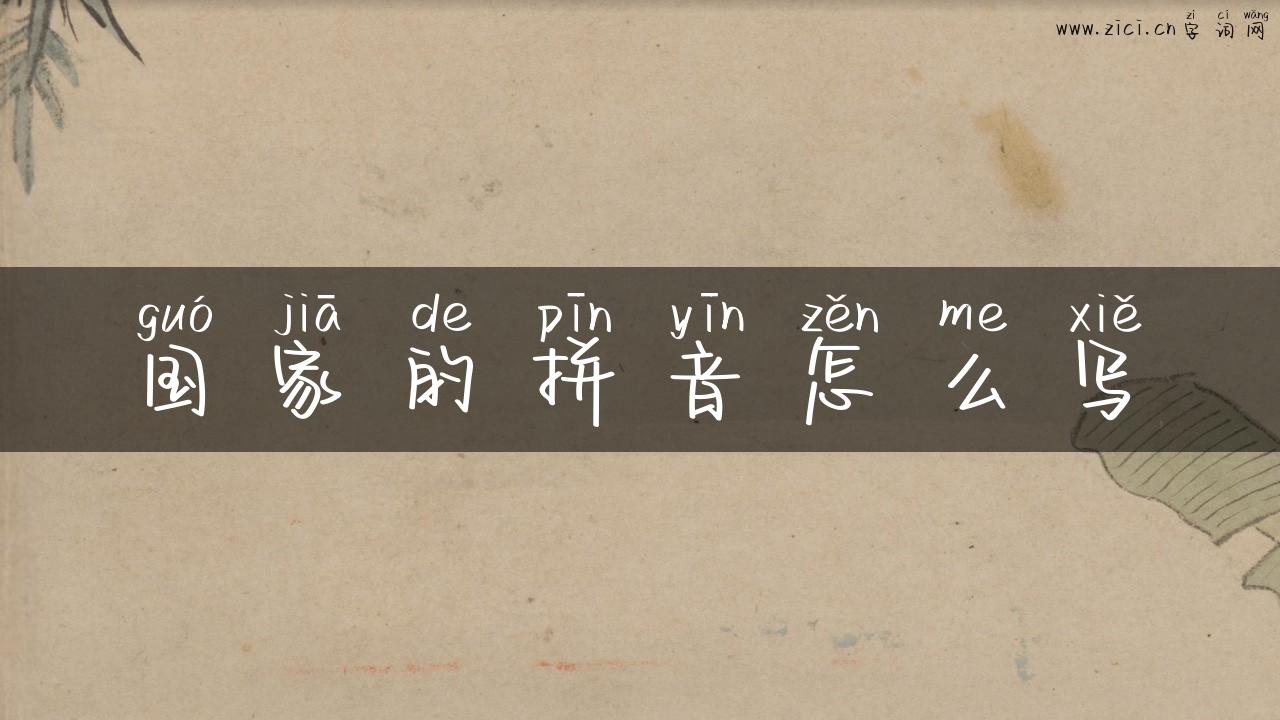 zì cí wǎng
www.zici.cn 字词网
guó jiā de pīn yīn zěn me xiě
国家的拼音怎么写